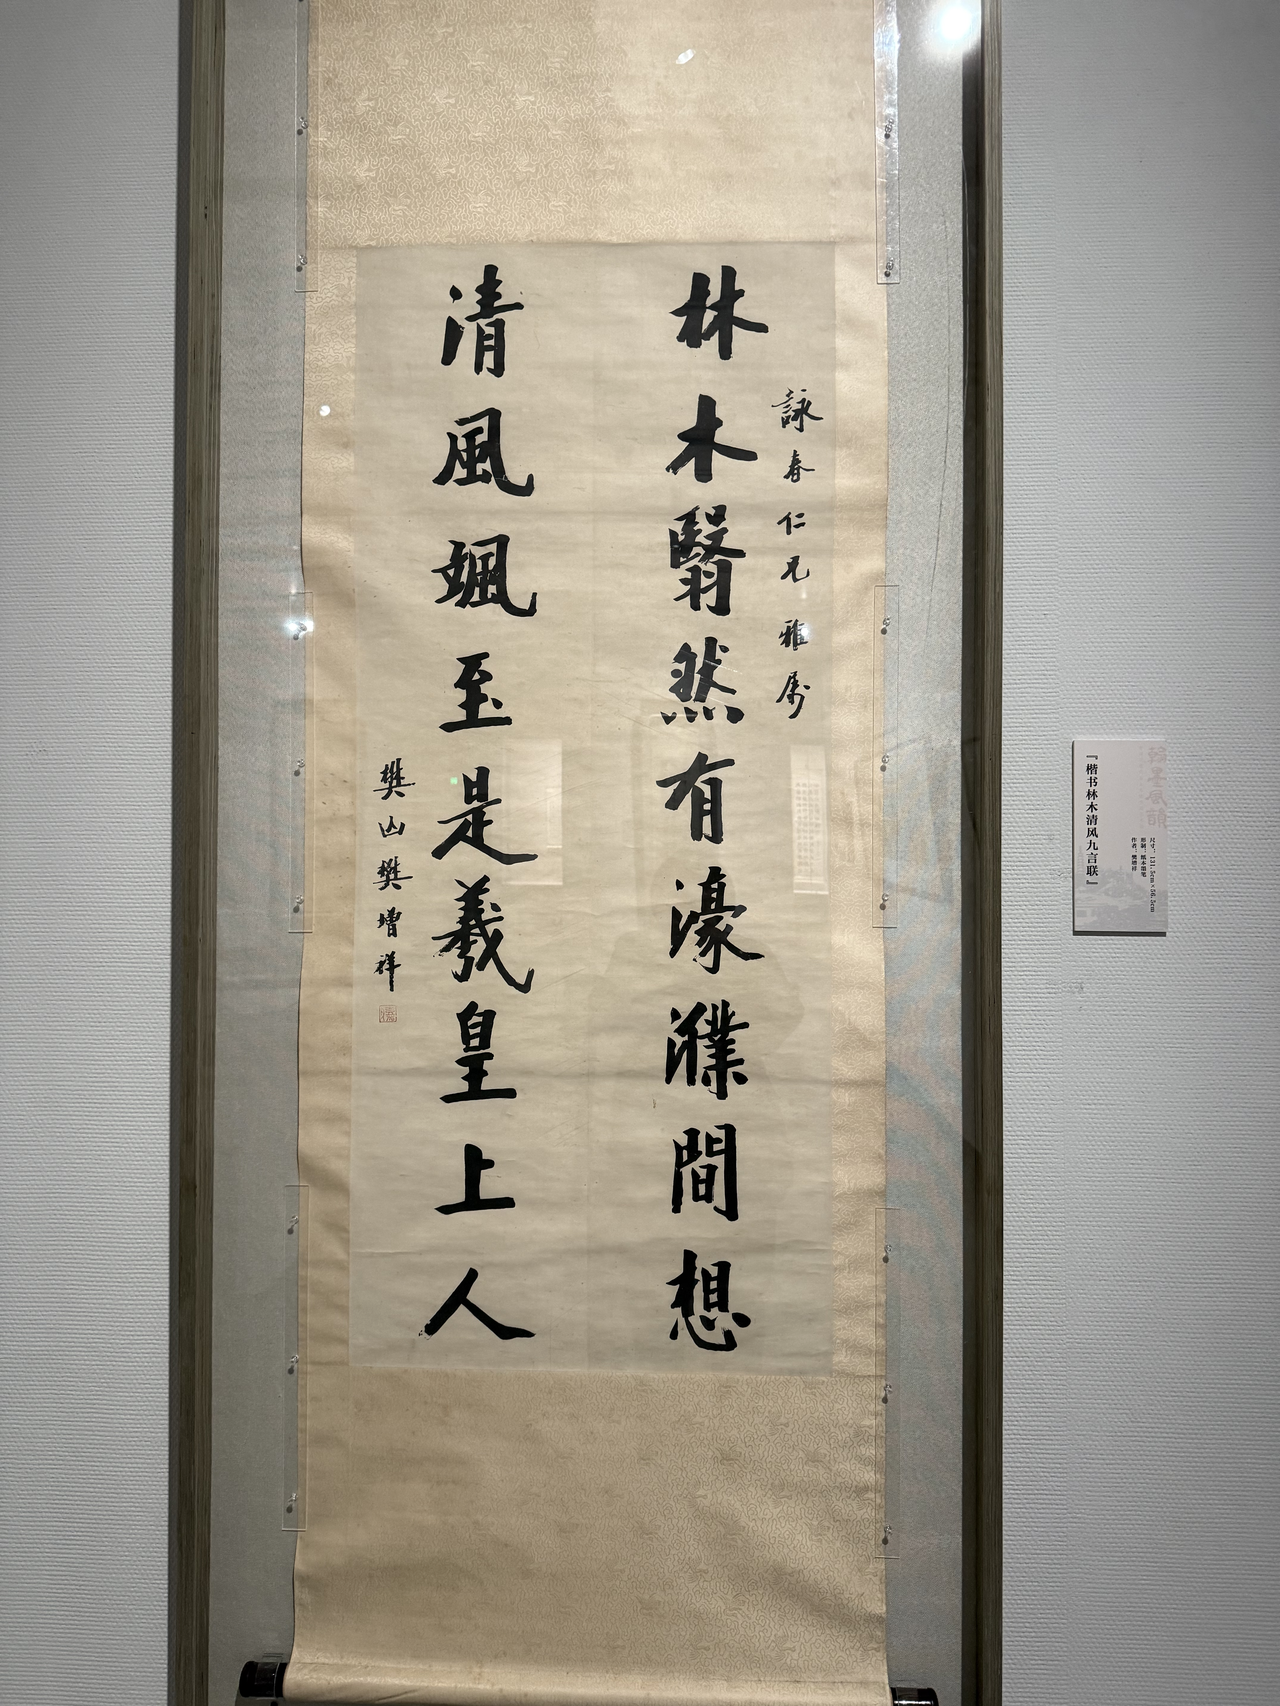 詠春仁兄雅属
林木翳然有濠濮間想
清風颯至是羲皇上人
樊山樊增祥
『楷书林木清风九言联』
尺寸：131.5cm×56.5cm
形制：纸本墨笔
作者：樊增祥